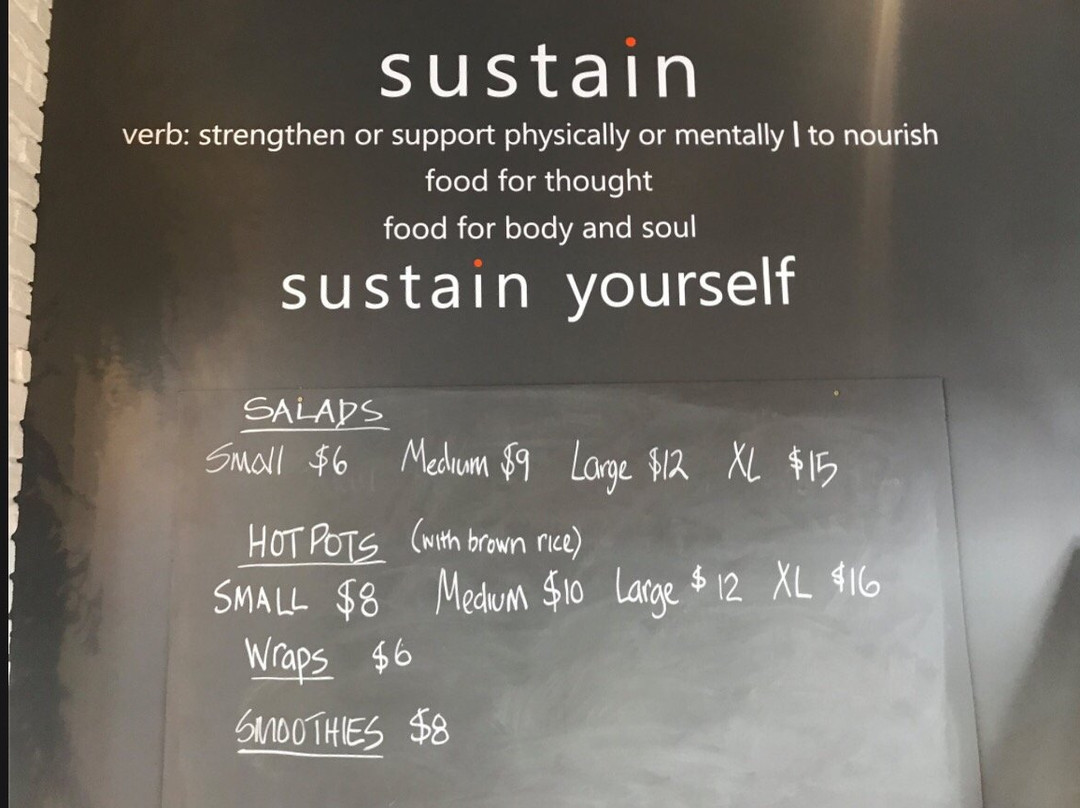 sustain
verb: strengthen or support physically or mentally | to nourish
food for thought
food for body and soul
sustain yourself
SALADS
Small $6 Medium $9 Large $12 XL $15
HOT POTS (with brown rice)
SMALL $8 Medium $10 Large $12 XL $16
Wraps $6
SMOOTHIES $8